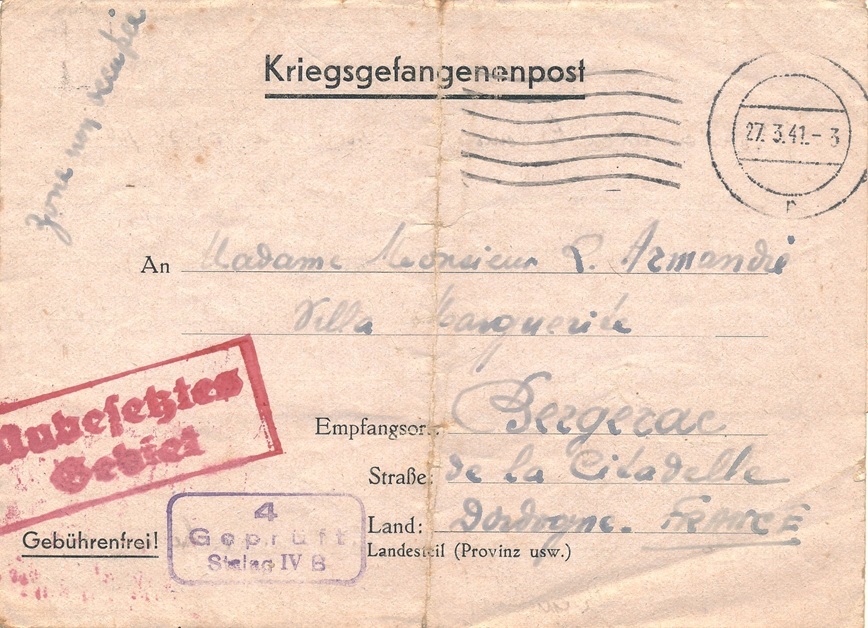 Zone non occupée
Kriegsgefangenenpost
27.3.41.-3
r
An Madame Monsieur P. Armandié
Villa Marguerite
Unbesetztes
Gebiet
Empfangsort: Bergerac
Straße: de la Citadelle
Land: Dordogne. FRANCE
Landesteil (Provinz usw.)
Gebührenfrei!
4
Geprüft
Stalag IV B